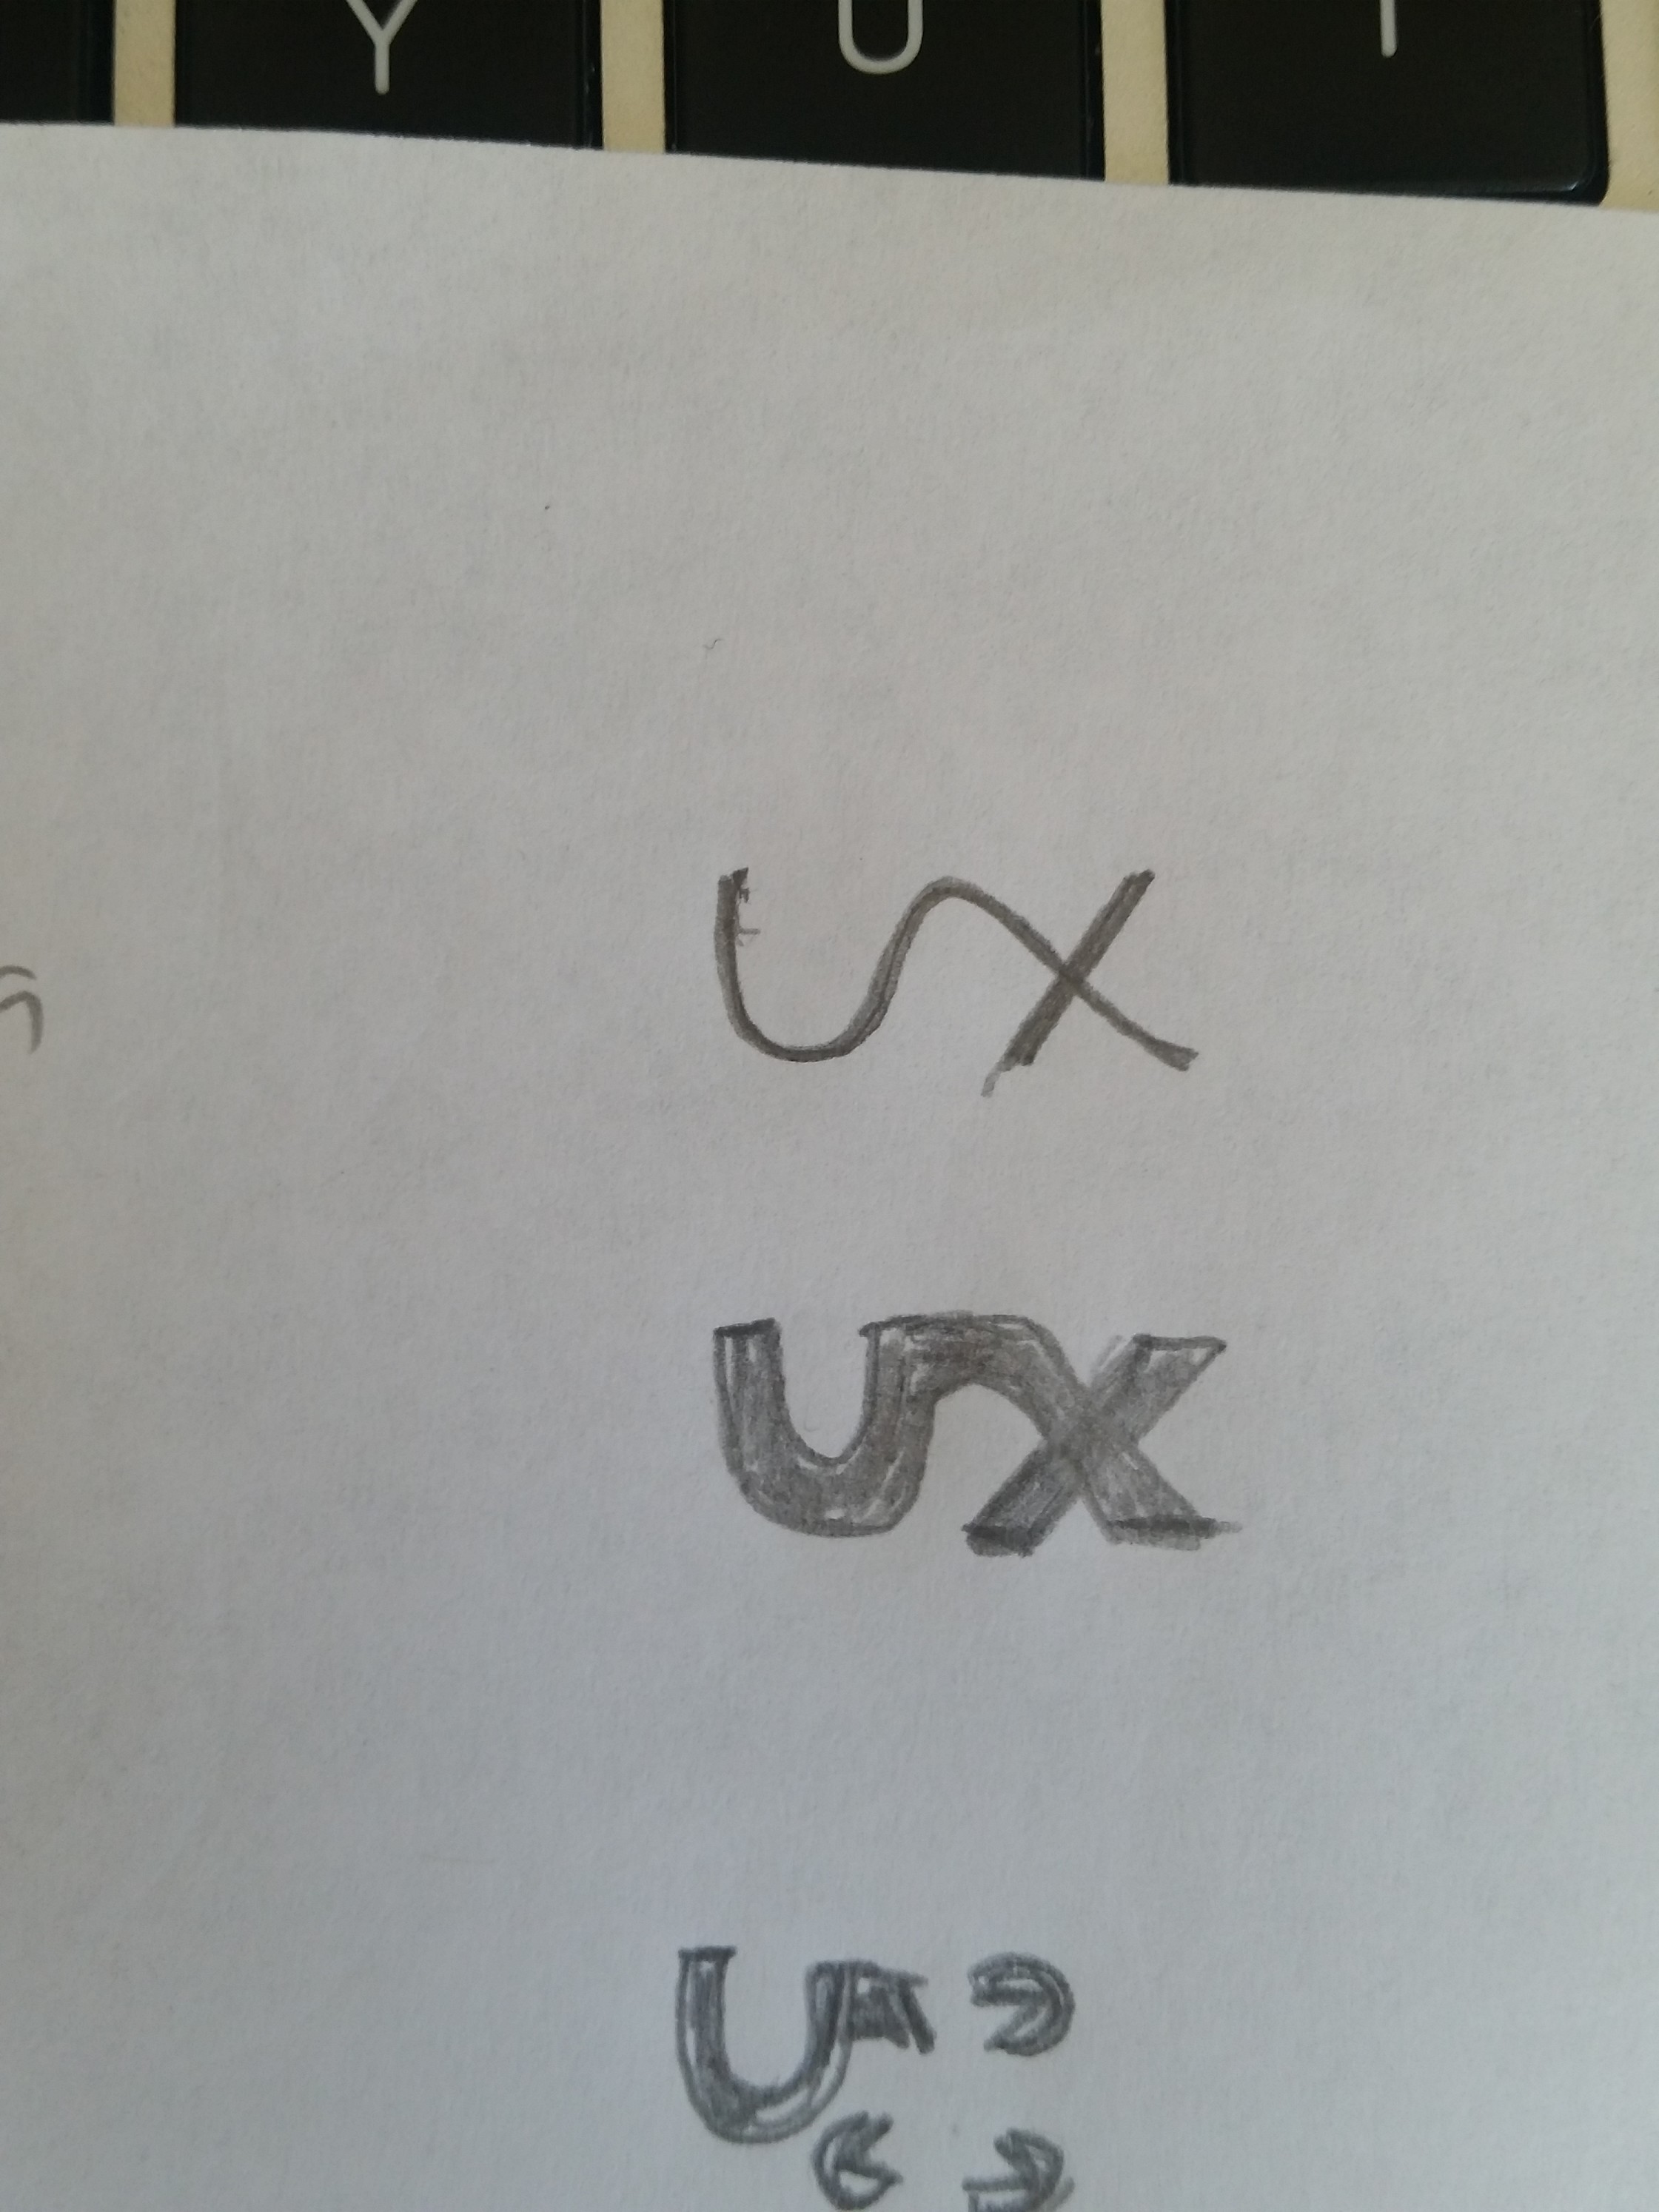 Y U
UX
UX
U